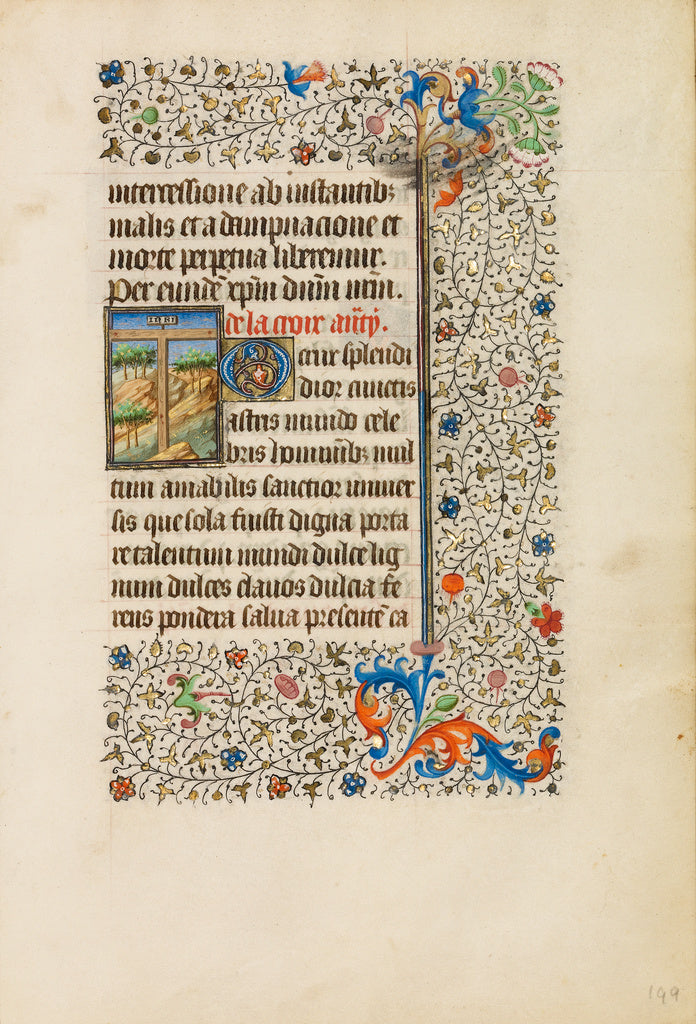 intercessione ab instantib3
malis et a dampnacione et
morte perpetua liberemur.
Per eundē xp̄m dn̄m nr̄m.
de la croix aūt̄.
INRI
O crux splendi
dior cunctis
astris mundo cele
bris hominib3 mul
tum amabilis sanctior univer
sis que sola fuisti digna porta
re talentum mundi dulce lig
num dulces clavos dulcia fe
rens pondera salva presentē ca
199